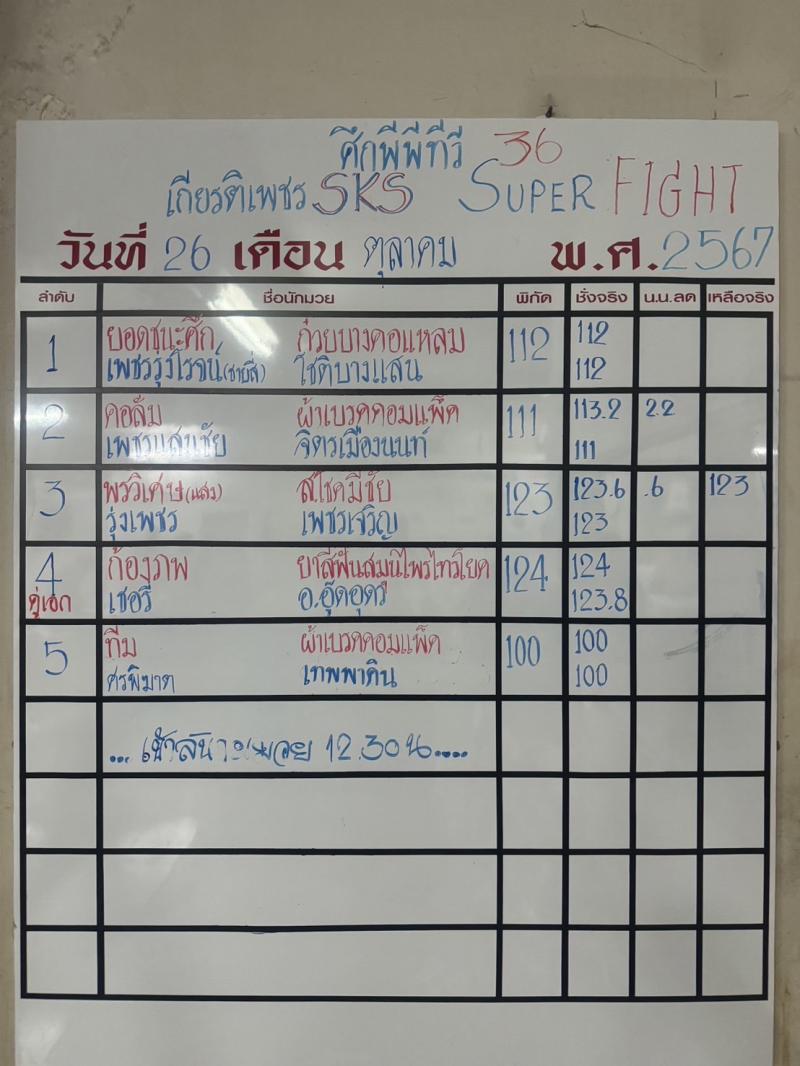 ศึกพีพีทีวี 36
เกียรติเพชร SKS SUPER FIGHT
วันที่ 26 เดือน ตุลาคม พ.ศ. 2567
ลำดับ ชื่อนักมวย พิกัด ชั่งจริง น.น.ลด เหลือจริง
1 ยอดชนะศึก ก๋วยบางคอแหลม 112 112
เพชรรุ่งโรจน์ โชติบางแสน 112
2 คอลัม ผ้าเบรคคอมแพ็ค 111 113.2 2.2
เพชรแสนชัย จิตรเมืองนนท์ 111
3 พรวิเศษ(แสง) ส.โชคมีชัย 123 123.6 .6 123
รุ่งเพชร เพชรเจริญ 123
4 ก้องภพ ยาสีฟันสมุนไพรไทวโยค 124 124
คู่เอก เชอรี่ อ.อู๊ดอุดร 123.8
5 ทีม ผ้าเบรคคอมแพ็ค 100 100
ศรพิฆาต เทพพาดิน 100
12.30 น.....